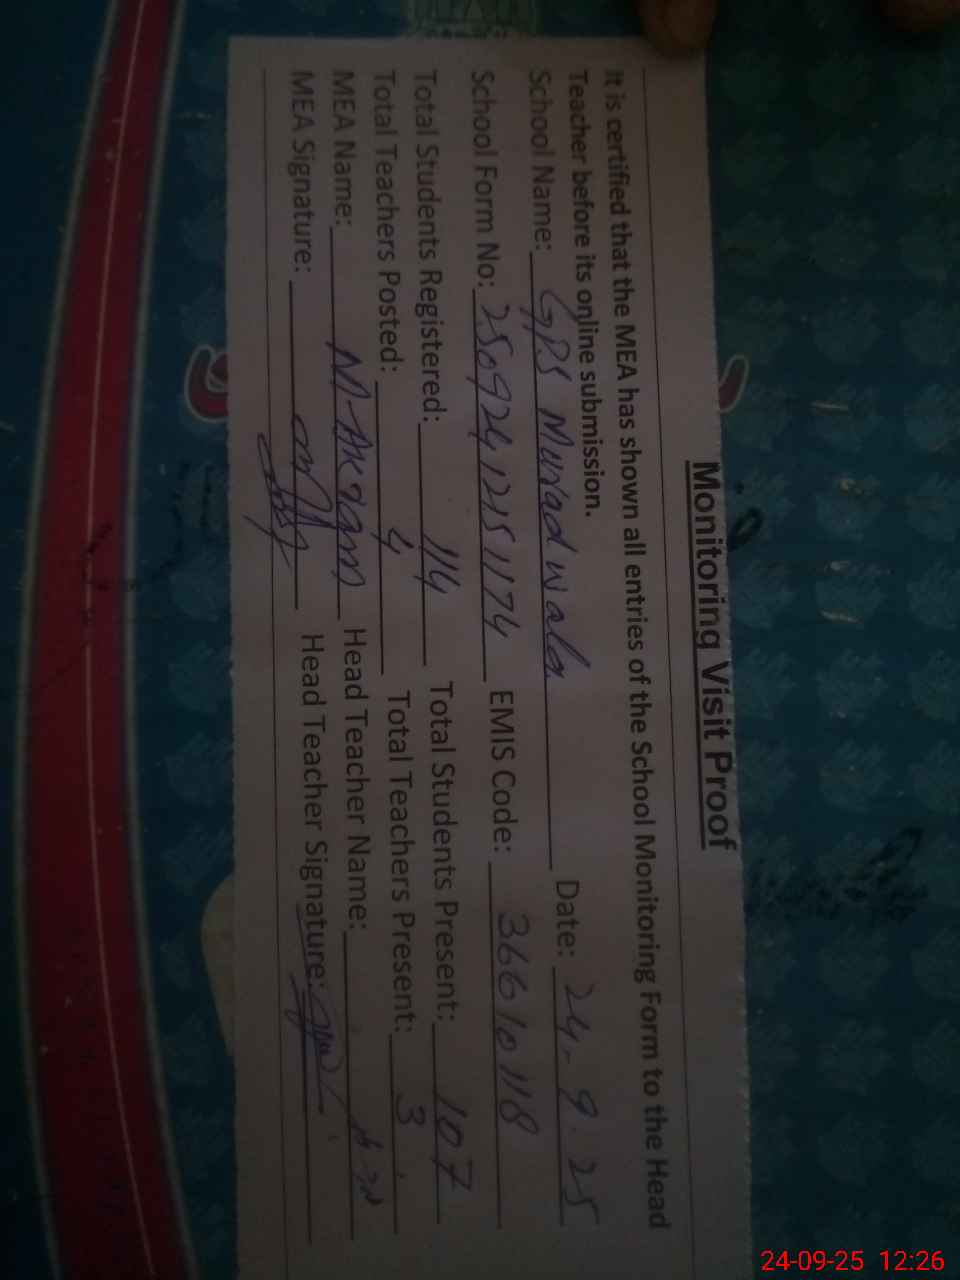 Monitoring Visit Proof
It is certified that the MEA has shown all entries of the School Monitoring Form to the Head
Teacher before its online submission.
School Name: GPS Murad wala Date: 24-9-25
School Form No: 25092412151174 EMIS Code: 36610118
Total Students Registered: 114 Total Students Present: 107
Total Teachers Posted: 4 Total Teachers Present: 3
MEA Name: M-Akram Head Teacher Name:
MEA Signature: Head Teacher Signature:
24-09-25 12:26